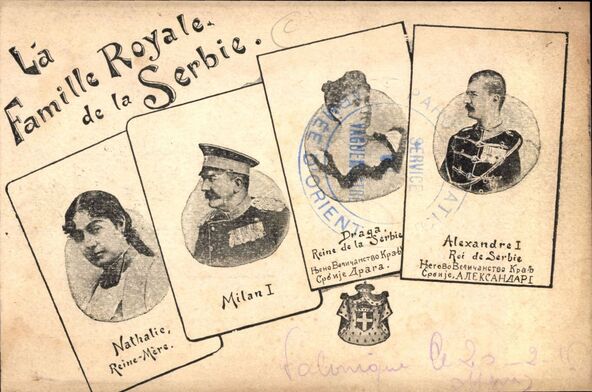 La
Famille Royale.
de la Serbie.
Nathalie,
Reine-Mère.
Milan I
Draga,
Reine de la Serbie
Његово Величанство Краљ
Србије Драга.
Alexandre I
Roi de Serbie
Његово Величанство Краљ
Србије, АЛЕКСАНДАР I
ARMÉE D'ORIENT
SERVICE
Salonique le 2